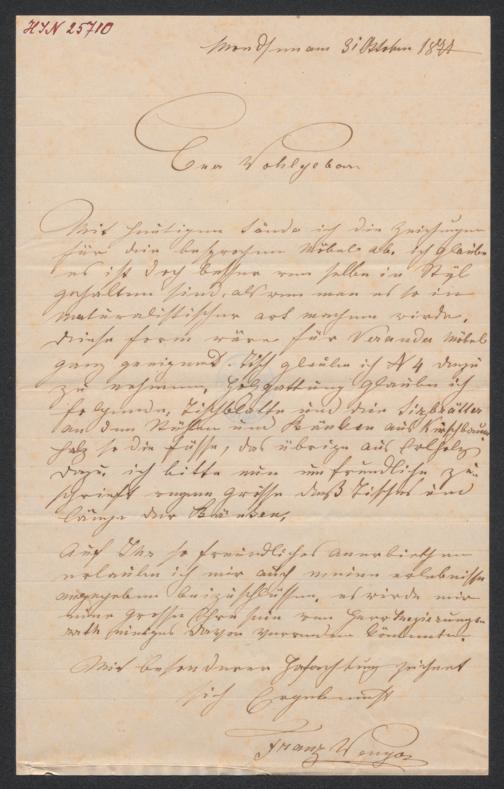 HIN 25710
Mondsee am 31 Oktober 18
Euer Wohlgeboren
Mit heutigem sände ich die Zeichnungen
für die besprochen Möbel ab. ich glaube
es ist doch besser wen selbe in Styl
gehalten sind, als wen man es so in
naturalistischer art machen wirde.
diese form wäre für Veranda Möbel
ganz geeignet. Tisch glaube ich N 4 dazu
zu nehmen, Holzgattung glaube ich
folgende, Tischblatte und die Sizbrätter
an den Stühlen und Bänken aus Kirschbaum
holz so die Füsse, das übrige aus
dazu. ich bitte nun um freundliche zu
schrieft wegen grösse des Tisches und
länge der Bänken.
Auf Ihr so freundliches anerbiethen
erlaube ich mir auch meine erlebnisse
beizuschlüssen. es wirde mir
eine grosse Ehre sein wen Herr Regierungs
rath einiges davon verwenden könnten.
Mit besonderer Hochachtung zeichnet
sich Ergebenst
Franz